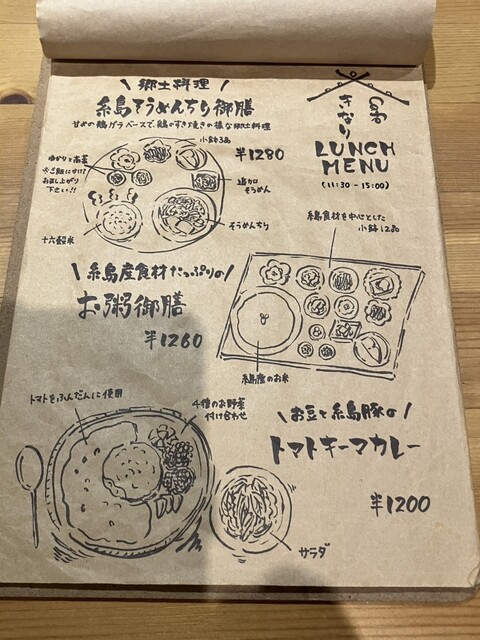 郷土料理
糸島そうめんちり御膳
甘めの鶏ガラベースで、鶏のすき焼きの様な郷土料理
小鉢3品
¥1280
ゆかりと高菜
※ご飯にかけて
お召し上がり
下さい!!
追加
そうめん
十六穀米
そうめんちり
きなり
LUNCH
MENU
(11:30-15:00)
糸島食材を中心とした
小鉢12品
糸島産食材たっぷりの
お粥御膳
¥1260
糸島産のお米
トマトをふんだんに使用
4種のお野菜
付け合わせ
お豆と糸島豚の
トマトキーマカレー
¥1200
サラダ